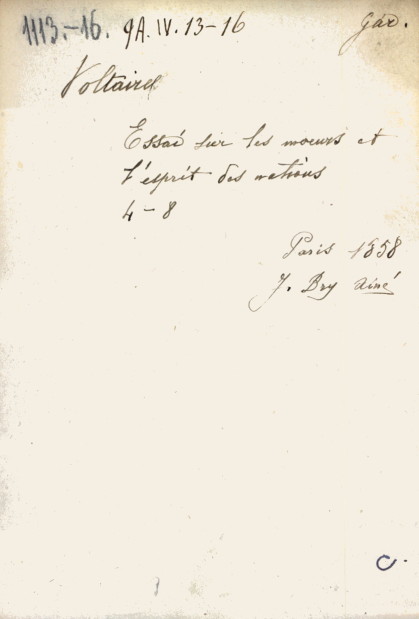 1113.-16. 9A.IV.13-16 Gar.
Voltaire
Essai sur les moeurs et
l'esprit des nations
4-8
Paris 1858
J. Bry ainé
C.